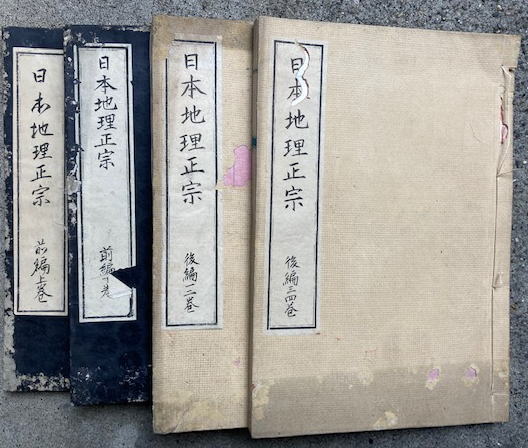 日本地理正宗
前編上巻
日本地理正宗
前編
巻
日本地理正宗
後編一二巻
日本地理正宗
後編三四巻